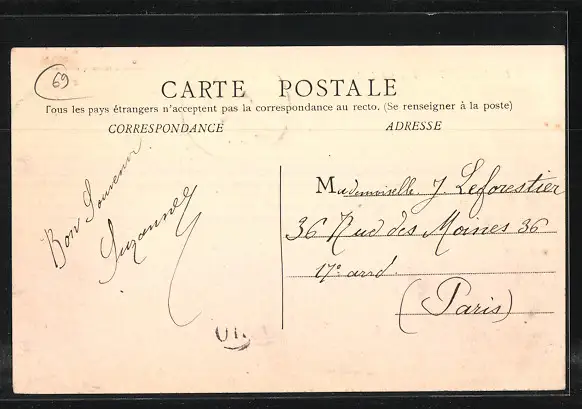 69
CARTE POSTALE
Tous les pays étrangers n'acceptent pas la correspondance au recto. (Se renseigner à la poste)
CORRESPONDANCE
ADRESSE
Bon Souvenir
Suzanne
Mademoiselle J. Leforestier
36 Rue des Moines 36
17e arrd.
(Paris)